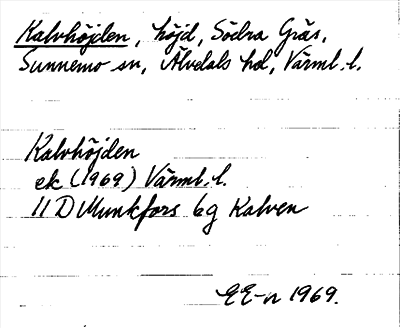 Kalvhöjden, höjd, Södra Gräs,
Sunnemo sn, Älvdals hd, Värml. l.
Kalvhöjden
ek (1969) Värml. l.
11 D Munkfors 6g Kalven
EE-n 1969.